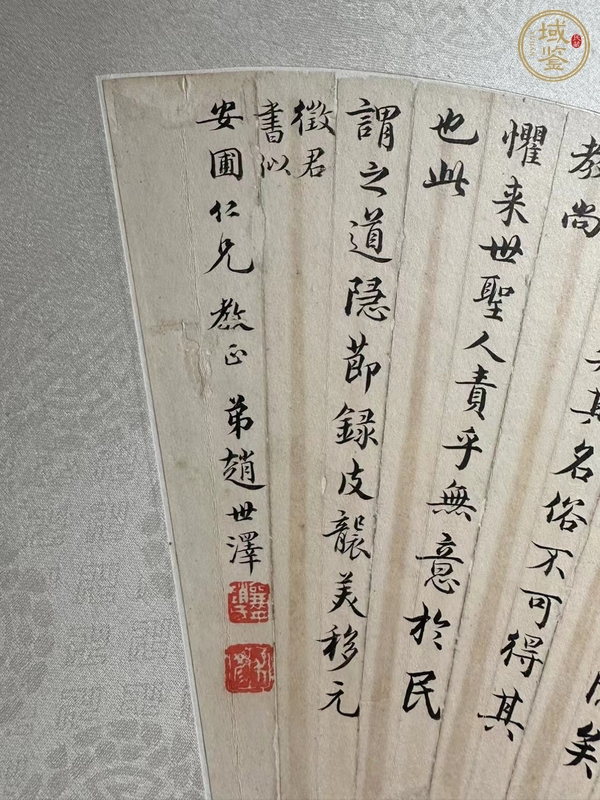 教尚
其名俗不可得其
懼来世聖人責乎無意於民
也此
謂之道隱節録皮襲美移元
徵君
書似
安圃仁兄教正弟趙世澤
域鑒